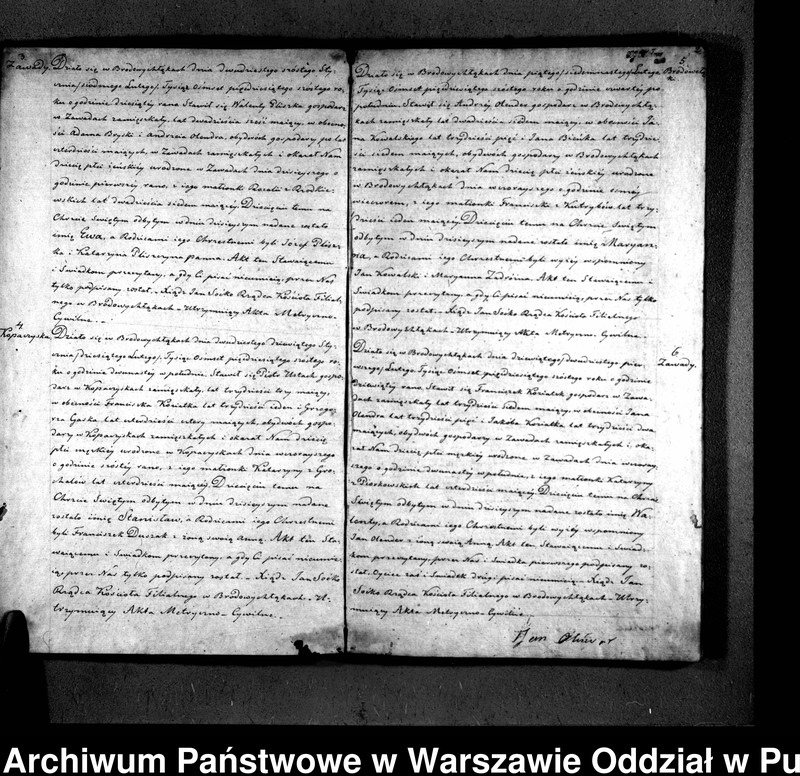 3
Zawady.
Działo się w Brodowychłąkach dnia dwudziestego szóstego Sty-
cznia/siódmego Lutego/Tysiąc Ośmset pięćdziesiątego szóstego ro-
ku o godzinie dziesiątéj rano. Stawił się Walenty Pliszka gospodarz
w Zawadach zamięszkały, lat dwadzieścia sześć maiący, w obecno-
ści Adama Bryski i Andrzeja Olendra, obydwóch gospodarzy po lat
czterdzieści maiących, w Zawadach zamięszkałych i okazał Nam
dziecię płci żeńskiéj urodzone w Zawadach dnia dzisieyszego o
godzinie pierwszéj rano, z iego małżonki Rozalii z
lat dwadzieścia siedem maiącéj. Dziecięciu temu na
Chrzcie Świętym odbytym w dniu dzisieyszym nadane zostało
imię Ewa, a Rodzicami iego Chrzestnemi byli Józef Plisz-
ka i Katarzyna Pliszczyna panna. Akt ten Stawaiącemu
i Świadkom przeczytany, a gdy Ci pisać nieumieią, przez Nas
tylko podpisany został. Xiądz Jan Sośko Rządca Kościoła Filial-
nego w Brodowychłąkach Utrzymuiący Akta Metryczno-
Cywilne.
4
Kopaczyska.
Działo się w Brodowychłąkach dnia dwudziestego dziewiątego Sty-
cznia/dziesiątego Lutego/Tysiąc Ośmset pięćdziesiątego szóstego ro-
ku o godzinie dwunastéj w południe. Stawił się Piotr gospo-
darz w Kopaczyskach zamięszkały, lat trzydzieści trzy maiący,
w obecności Franciszka Kosiatka lat trzydzieści ieden i Grzego-
rza Gąska, lat czterdzieści cztery maiących, obydwóch gospo-
darzy w Kopaczyskach zamięszkałych i okazał Nam dziecię
płci męzkiéj urodzone w Kopaczyskach dnia wczorayszego
o godzinie szóstéj rano, z iego małżonki Katarzyny z Gro-
chalów lat czterdzieści maiącéj. Dziecięciu temu na
Chrzcie Świętym odbytym w dniu dzisieyszym nadane
zostało imię Stanisław, a Rodzicami iego Chrzestnemi
byli Franciszek Duszak z żoną swoią Anną. Akt ten Sta-
waiącemu i Świadkom przeczytany, a gdy Ci pisać nieumie-
ią, przez Nas tylko podpisany został. Xiądz Jan Sośko
Rządca Kościoła Filialnego w Brodowychłąkach U-
trzymuiący Akta Metryczno-Cywilne.
5
Działo się w Brodowychłąkach dnia piątego/siedemnastego/Lutego
Tysiąc Ośmset pięćdziesiątego szóstego roku o godzinie czwartéj po
południu. Stawił się Andrzéj Olender gospodarz w Brodowychłą-
kach zamięszkały, lat dwadzieścia siedem maiący, w obecności Ja-
na Kowalskiego lat trzydzieści pięć i Jana lat trzydzie-
ści siedem maiących, obydwóch gospodarzy w Brodowychłąkach
zamięszkałych i okazał Nam dziecię płci żeńskiéj urodzone
w Brodowychłąkach dnia wczorayszego o godzinie ósméj
wieczorem, z iego małżonki Franciszki z lat trzy-
dzieści ieden maiącéj. Dziecięciu temu na Chrzcie Świętym
odbytym w dniu dzisieyszym nadane zostało imię Maryan-
na, a Rodzicami iego Chrzestnemi byli wyżéj wspomniony
Jan Kowalski i Maryanna Akt ten Stawaiącemu i
Świadkom przeczytany, a gdy Ci pisać nieumieią, przez Nas tylko
podpisany został. Xiądz Jan Sośko Rządca Kościoła Filialnego
w Brodowychłąkach Utrzymuiący Akta Metryczno-Cywilne.
6
Zawady.
Działo się w Brodowychłąkach dnia dziewiątego/dwudziestego pier-
wszego/Lutego Tysiąc Ośmset pięćdziesiątego szóstego roku o godzinie
dziewiątéj rano. Stawił się Franciszek Kosiatek gospodarz w Zawa-
dach zamięszkały lat trzydzieści siedem maiący, w obecności Jana
Olendra lat trzydzieści pięć i Jakóba Kosiatka lat trzydzieści dwa
maiących, obydwóch gospodarzy w Zawadach zamięszkałych i oka-
zał Nam dziecię płci męzkiéj urodzone w Zawadach dnia wczoray-
szego o godzinie dwunastéj w południe, z iego małżonki Katarzyny
z lat czterdzieści maiącéj. Dziecięciu temu na Chrzcie
Świętym odbytym w dniu dzisieyszym nadane zostało imię Wa-
lenty, a Rodzicami iego Chrzestnemi byli wyżéj wspomniony
Jan Olender z żoną swoią Anną. Akt ten Stawaiącemu i Świad-
kom przeczytany, przez Nas i Świadka pierwszego podpisany zo-
stał. Oyciec zaś i Świadek drugi pisać nieumieią. Xiądz Jan
Sośko Rządca Kościoła Filialnego w Brodowychłąkach Utrzy-
muiący Akta Metryczno-Cywilne.
Jan
Archiwum Państwowe w Warszawie Oddział w Pu